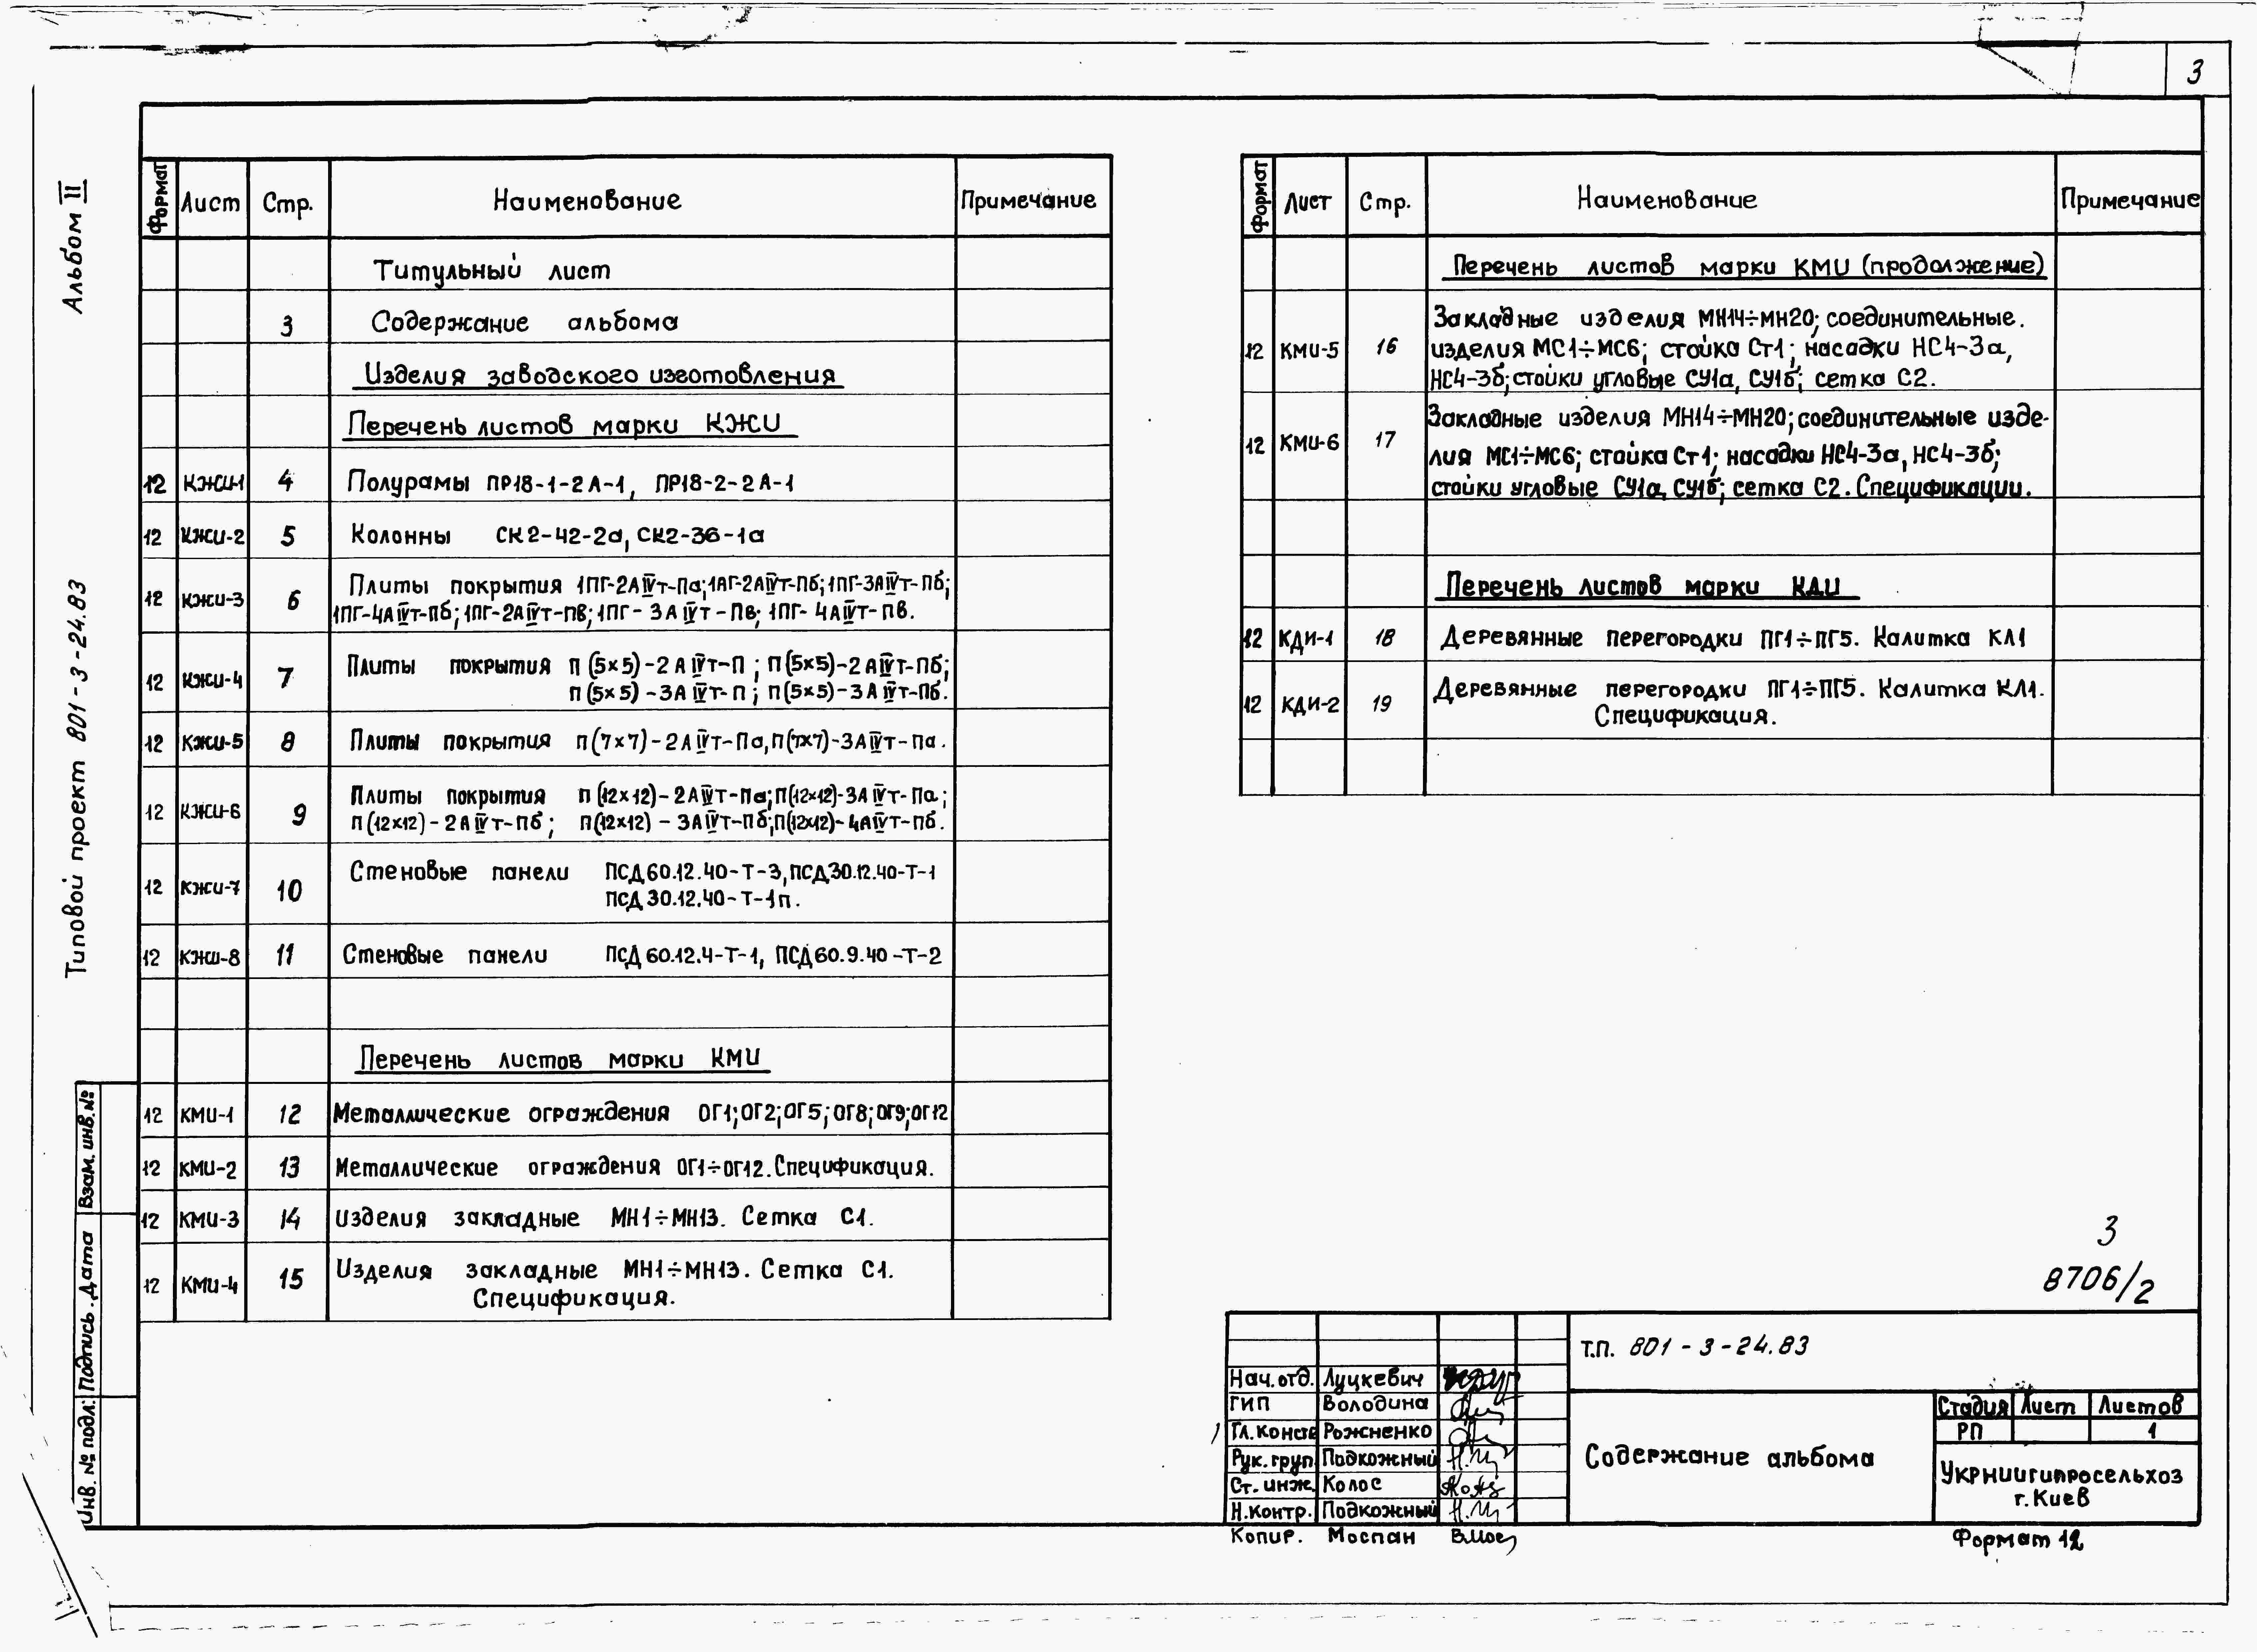 3
Альбом II
Типовой проект 801-3-24.83
Взам. инв. №
Подпись. Дата
Инв. № подл.
Формат Лист Стр. Наименование Примечание
Титульный лист
3 Содержание альбома
Изделия заводского изготовления
Перечень листов марки КЖИ
12 КЖИ-1 4 Полурамы ПР18-1-2А-1, ПР18-2-2А-1
12 КЖИ-2 5 Колонны СК2-42-2а, СК2-36-1а
12 КЖИ-3 6 Плиты покрытия 1ПГ-2АIVт-Па; 1АГ-2АIVт-Пб; 1ПГ-3АIVт-Пб;
1ПГ-4АIVт-Пб; 1ПГ-2АIVт-Пв; 1ПГ-3АIVт-Пв; 1ПГ-4АIVт-Пв.
12 КЖИ-4 7 Плиты покрытия П(5×5)-2АIVт-П; П(5×5)-2АIVт-Пб;
П(5×5)-3АIVт-П; П(5×5)-3АIVт-Пб.
12 КЖИ-5 8 Плиты покрытия П(7×7)-2АIVт-Па, П(7×7)-3АIVт-Па.
12 КЖИ-6 9 Плиты покрытия П(12×12)-2АIVт-Па; П(12×12)-3АIVт-Па;
П(12×12)-2АIVт-Пб; П(12×12)-3АIVт-Пб; П(12×12)-4АIVт-Пб.
12 КЖИ-7 10 Стеновые панели ПСД60.12.40-Т-3, ПСД30.12.40-Т-1
ПСД30.12.40-Т-1п.
12 КЖИ-8 11 Стеновые панели ПСД60.12.4-Т-1, ПСД60.9.40-Т-2
Перечень листов марки КМИ
12 КМИ-1 12 Металлические ограждения ОГ1; ОГ2; ОГ5; ОГ8; ОГ9; ОГ12
12 КМИ-2 13 Металлические ограждения ОГ1÷ОГ12. Спецификация.
12 КМИ-3 14 Изделия закладные МН1÷МН13. Сетка С1.
12 КМИ-4 15 Изделия закладные МН1÷МН13. Сетка С1.
Спецификация.
Формат Лист Стр. Наименование Примечание
Перечень листов марки КМИ (продолжение)
12 КМИ-5 16 Закладные изделия МН14÷МН20; соединительные.
изделия МС1÷МС6; стойка Ст1; насадки НС4-3а,
НС4-3б; стойки угловые СУ1а, СУ1б; сетка С2.
12 КМИ-6 17 Закладные изделия МН14÷МН20; соединительные изде-
лия МС1÷МС6; стойка Ст1; насадки НС4-3а, НС4-3б;
стойки угловые СУ1а, СУ1б; сетка С2. Спецификации.
Перечень листов марки КДИ
12 КДИ-1 18 Деревянные перегородки ПГ1÷ПГ5. Калитка КЛ1
12 КДИ-2 19 Деревянные перегородки ПГ1÷ПГ5. Калитка КЛ1.
Спецификация.
3
8706/2
Т.П. 801-3-24.83
Нач. отд. Луцкевич
ГИП Володина
Гл. конст Рожненко
Рук. груп. Подкожный
Ст. инж. Колос
Н. контр. Подкожный
Копир. Моспан
Содержание альбома
Стадия Лист Листов
РП 1
Укрниигипросельхоз
г. Киев
Формат 12